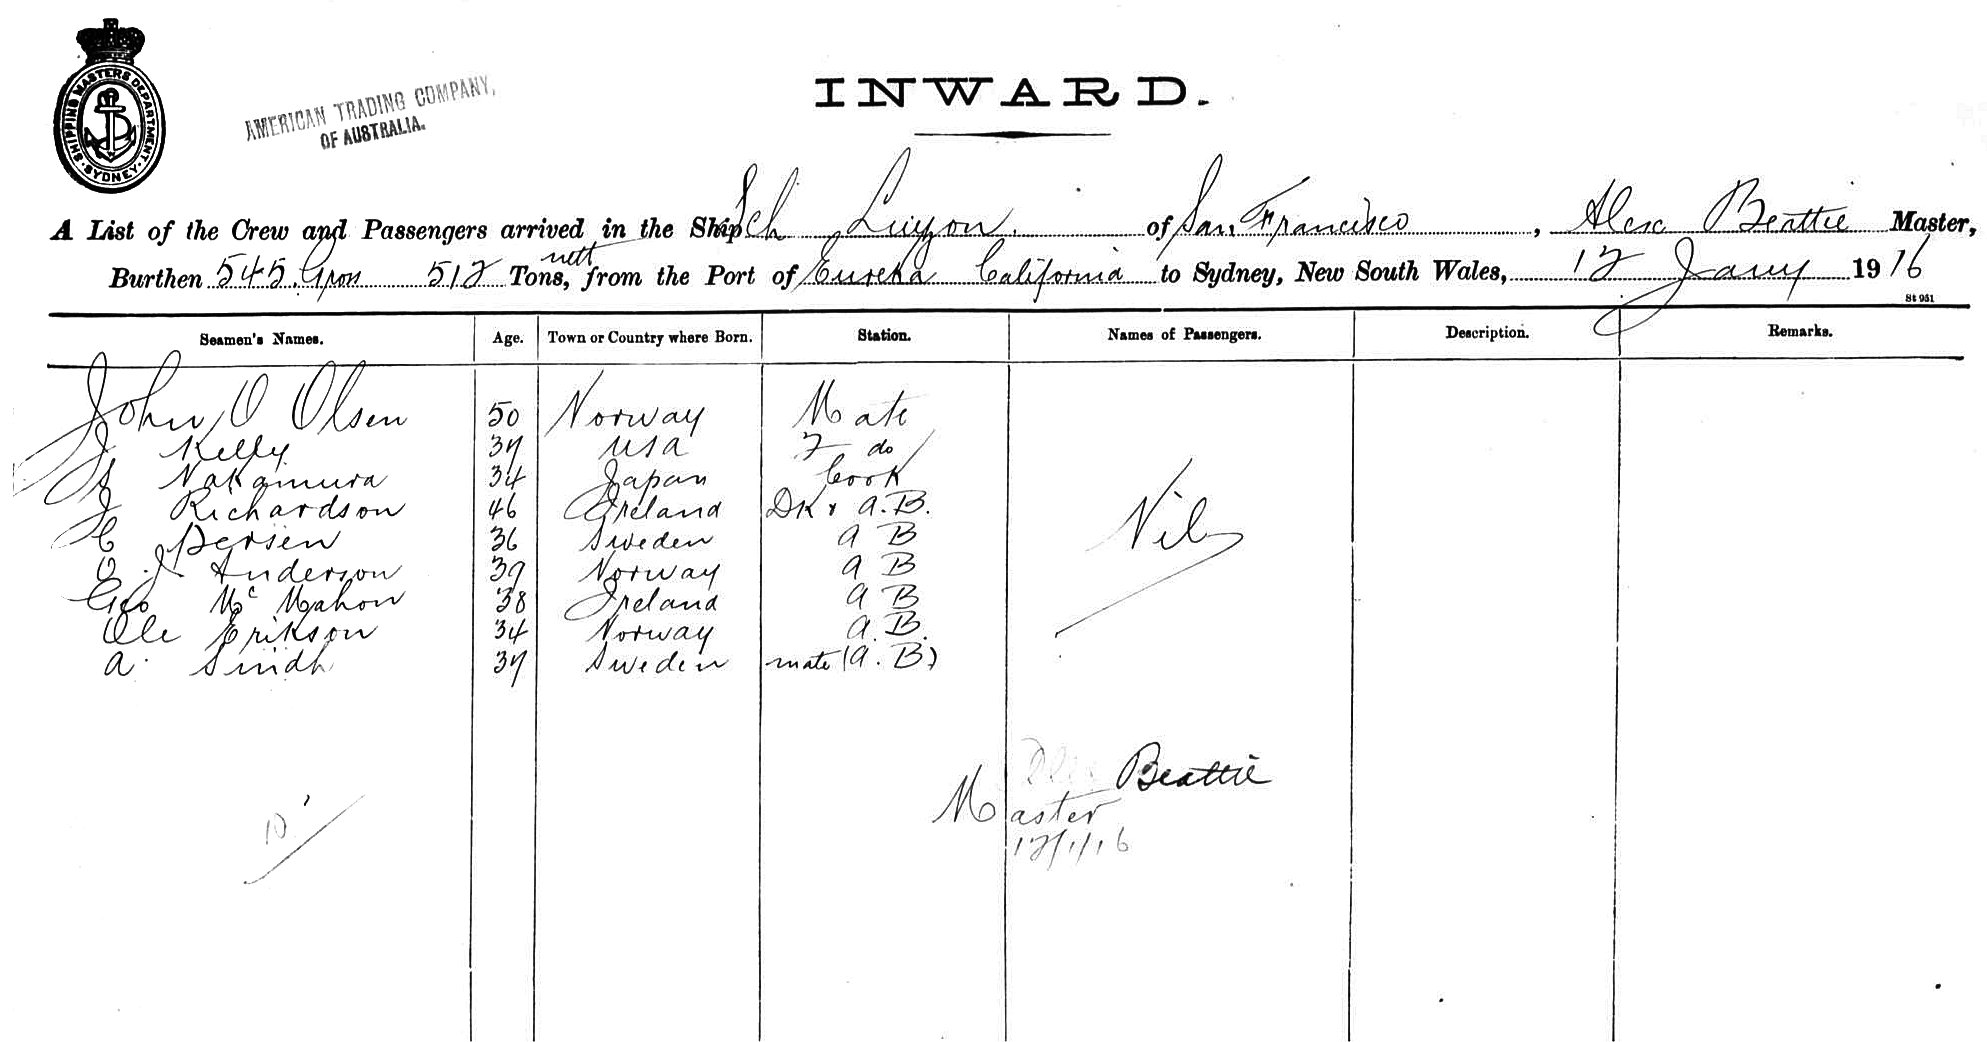 SHIPPING MASTERS DEPARTMENT · SYDNEY ·
AMERICAN TRADING COMPANY,
OF AUSTRALIA.
INWARD.
A List of the Crew and Passengers arrived in the Ship Sch Luzon. of San Francisco, Alex Beattie Master,
Burthen 545 Gross 512 nett Tons, from the Port of Eureka California to Sydney, New South Wales, 12 Jany 1916
St 951
Seamen's Names. Age. Town or Country where Born. Station. Names of Passengers. Description. Remarks.
John O Olsen 50 Norway Mate
J Kelly 37 USA 2 do
Nakamura 34 Japan Cook
J Richardson 46 Ireland DK & A.B.
C Persen 36 Sweden A B
O. J. Anderson 39 Norway A B
Geo Mc Mahon 38 Ireland A B
Ole Erikson 34 Norway A.B.
A. Sindh 37 Sweden mate (A.B)
Nil
Alex Beattie
Master
12/1/16
10